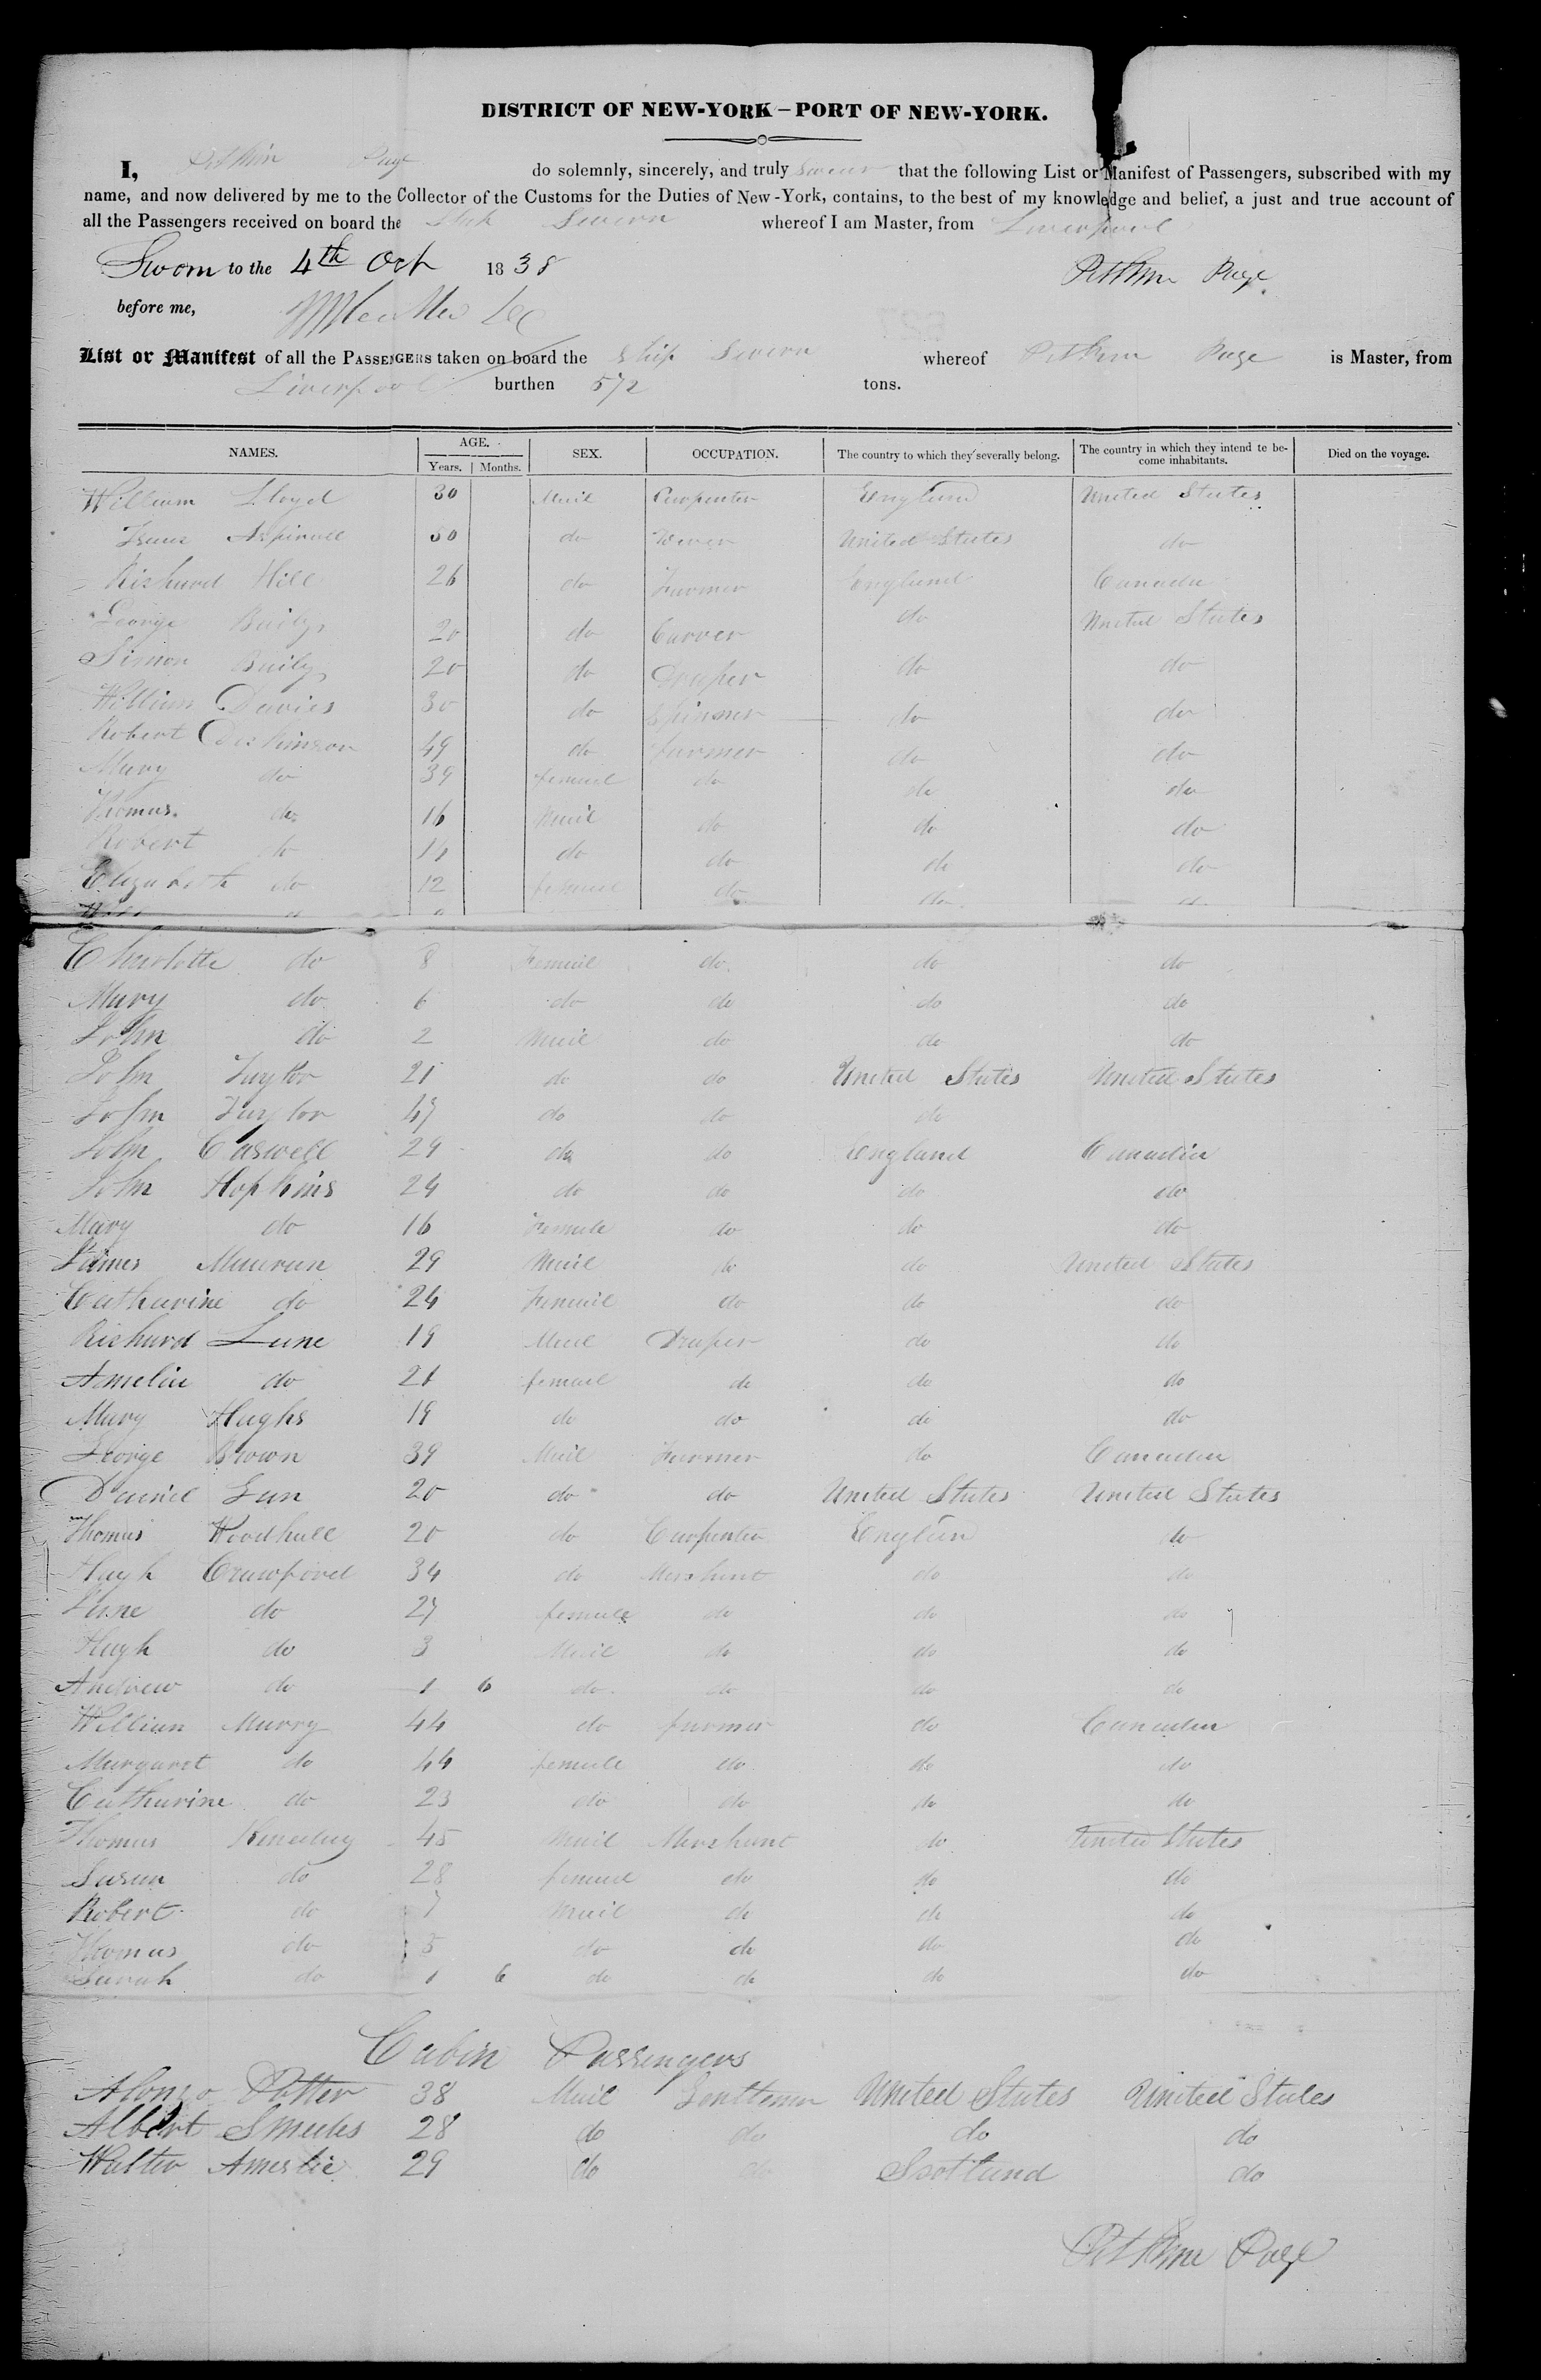 DISTRICT OF NEW-YORK – PORT OF NEW-YORK.
I, Pitkin Page do solemnly, sincerely, and truly swear that the following List or Manifest of Passengers, subscribed with my
name, and now delivered by me to the Collector of the Customs for the Duties of New-York, contains, to the best of my knowledge and belief, a just and true account of
all the Passengers received on board the Severn whereof I am Master, from Liverpool
Sworn to the 4th Oct 1838 Pitkin Page
before me,
List or Manifest of all the PASSENGERS taken on board the Ship Severn whereof Pitkin Page is Master, from
Liverpool burthen 572 tons.
NAMES. AGE. SEX. OCCUPATION. The country to which they severally belong. The country in which they intend te be- Died on the voyage.
Years. Months. come inhabitants.
William Lloyd 30 Mail Carpenter England United States
Isaac Aspinall 50 do United States do
Richard Hill 26 do Farmer England Canada
George Baily 20 do Carver do United States
Simon Baily 20 do Draper do do
William Davies 30 do Spinner do do
Robert Dickinson 49 do farmer do do
Mary do 39 femail do do do
Thomas do 16 Mail do do do
Robert do 14 do do do do
Elizabeth do 12 femail do do do
Charlotte do 8 Femail do do do
Mary do 6 do do do do
John do 2 Mail do do do
John Taylor 21 do do United States United States
John Taylor 47 do do do
John Caswell 29 do do England Canada
John Hopkins 24 do do do do
Mary do 16 Female do do do
James 29 Mail do do United States
Catharine do 24 Femail do do do
Richard Lune 19 Mail Draper do do
Amelia do 21 femail do do do
Mary Hughs 19 do do do do
George Brown 39 Mail Farmer do Canada
Daniel Gun 20 do do United States United States
Thomas Woodhall 20 do Carpenter England do
Hugh Crawford 34 do Merchant do do
Jane do 27 female do do do
Hugh do 3 Mail do do do
Andrew do 1 6 do do do do
William Murry 44 do farmer do Canada
Margaret do 44 female do do do
Catharine do 23 do do do do
Thomas 45 Mail Merchant do United States
Susan do 28 femail do do do
Robert do 7 Mail do do do
Thomas do 5 do do do do
Sarah do 1 6 do do do do
Cabin Passengers
Alonzo Potter 38 Mail Gentleman United States United States
Albert Smedes 28 do do do do
Walter 29 do do Scotland do
Pitkin Page